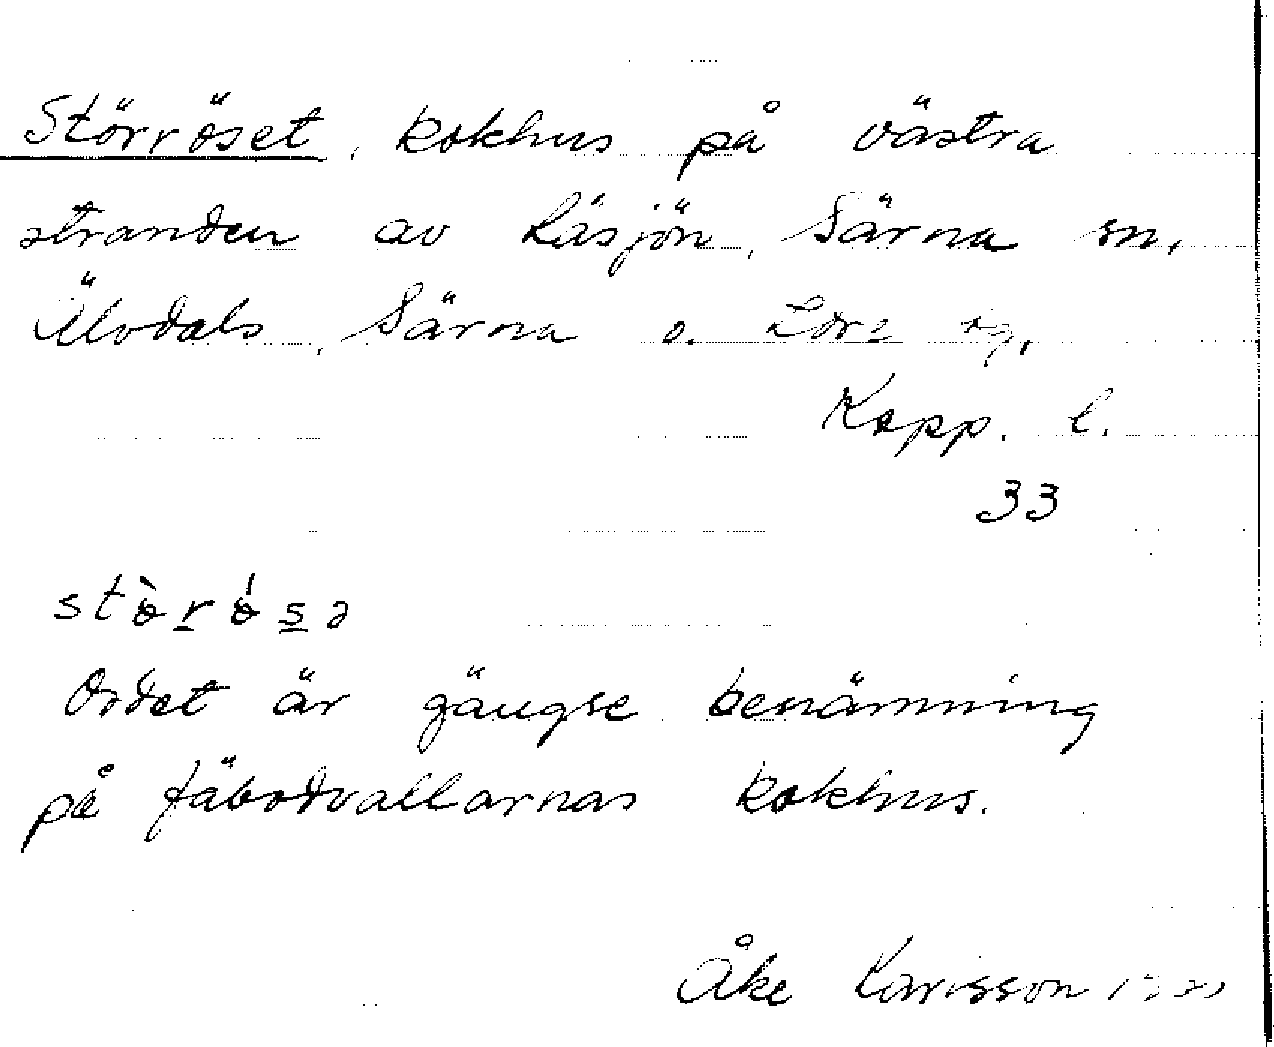 Störröset, kokhus på västra
stranden av Läsjön, Särna sn,
Älvdals, Särna o. tg,
Kopp. l.
33
Ordet är gängse benämning
på fäbodvallarnas kokhus.
Åke Karlsson